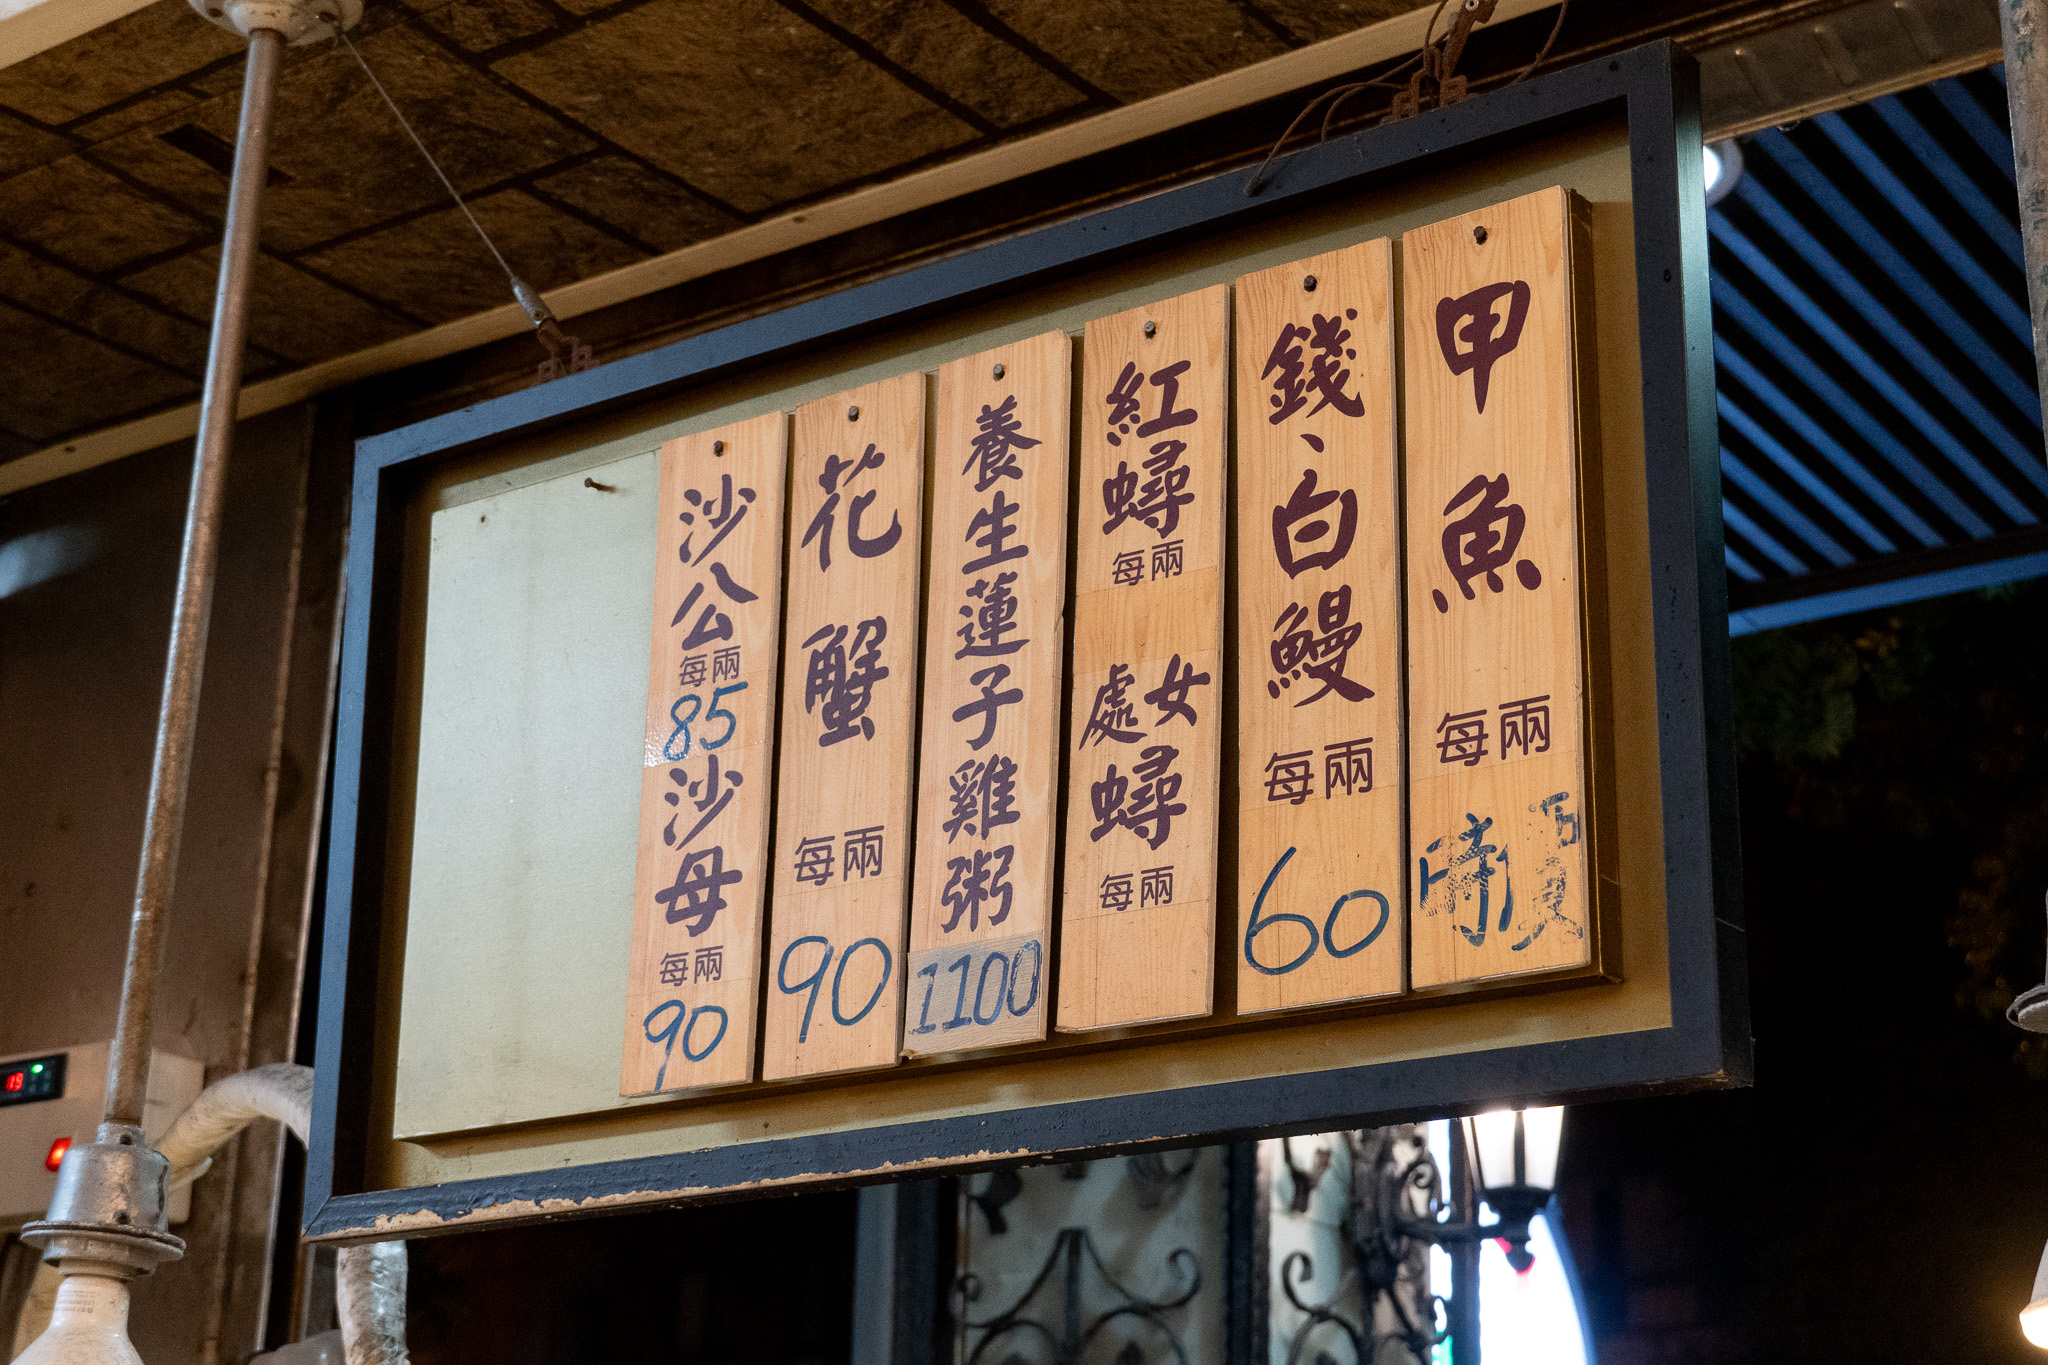 甲魚
每兩
時價
錢、白鰻
每兩
60
紅蟳
每兩
處女
蟳
每兩
養生蓮子雞粥
1100
花蟹
每兩
90
沙公
每兩
85
沙母
每兩
90